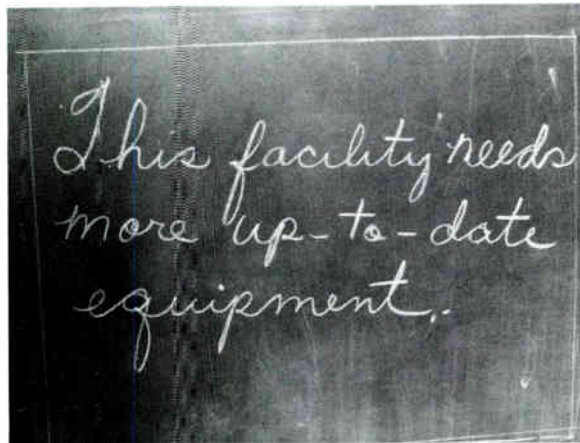 This facility needs
more up-to-date
equipment.